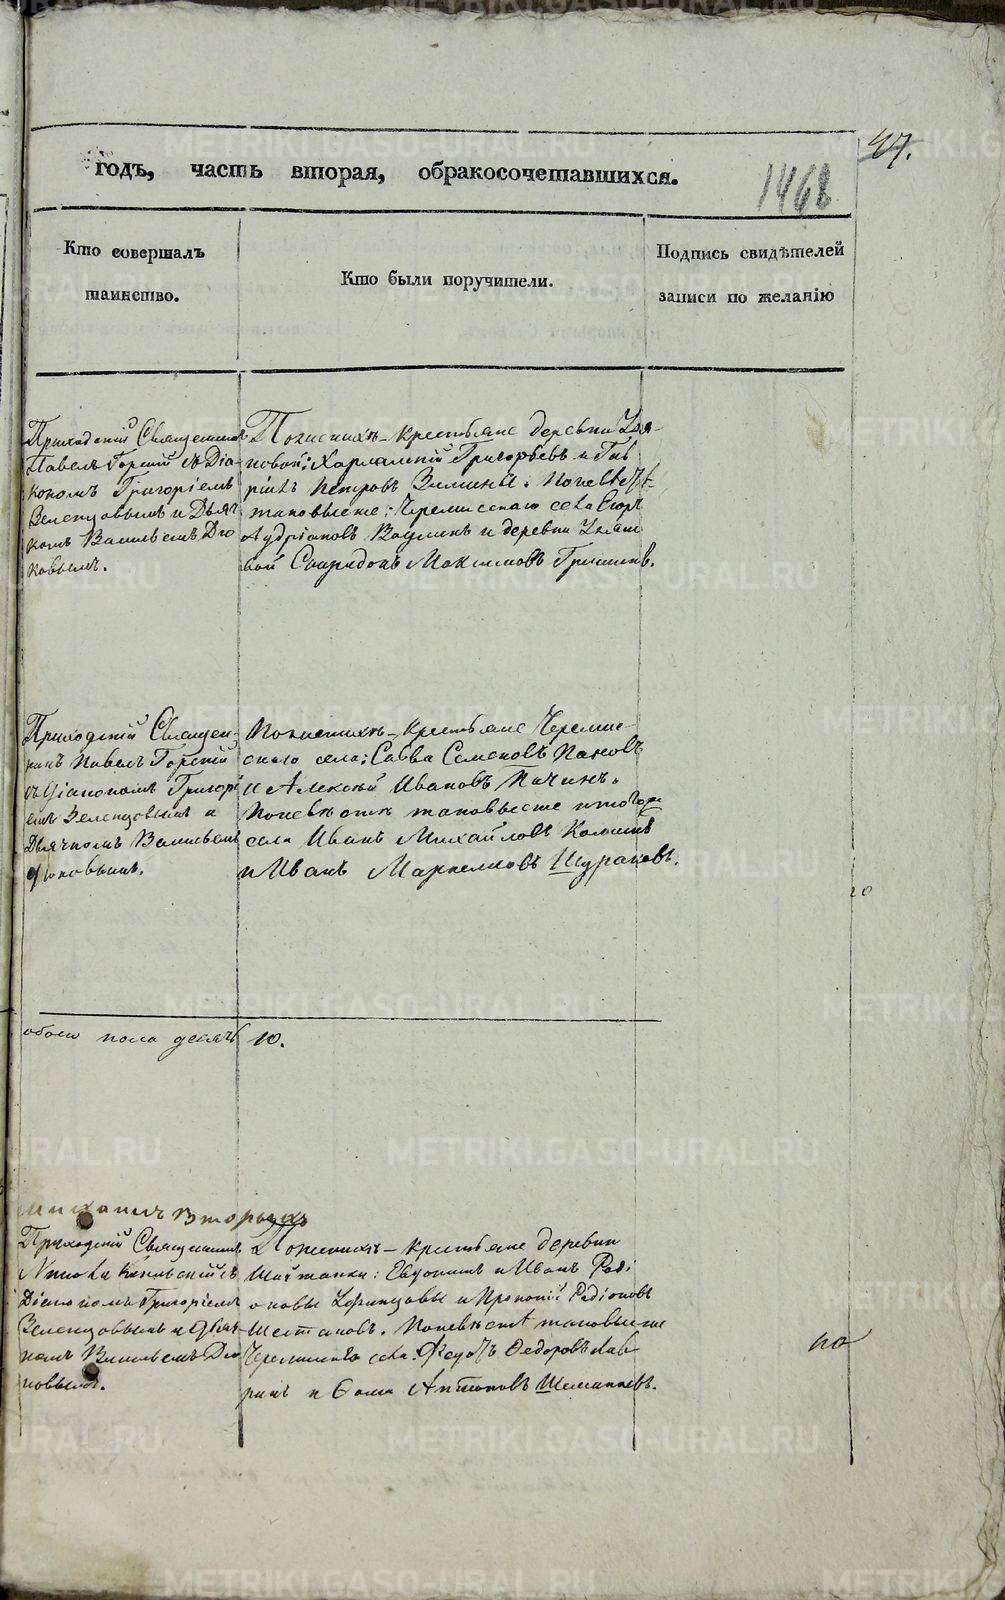 47.
годъ, часть вторая, обракосочетавшихся.
1468
Кто совершалъ таинство.
Кто были поручители.
Подпись свидѣтелей записи по желанію
Приходскій Священникъ
Павелъ Горскій съ Діа-
кономъ Григоріемъ
Зеленцовымъ и Дьяч
комъ Васильемъ Дю
ковымъ.
Поженихѣ - крестьяне деревни
новой: Харлампій Григорьевъ и
Петровъ Зиминъ. Поневѣстѣ
таковыеже: Черемисскаго села Егоръ
Андріановъ и деревни
вой Спиридонъ Максимовъ
Приходскій Священ-
никъ Павелъ Горскій
съ Діакономъ Григорі
емъ Зеленцовымъ и
Дьячкомъ Васильемъ
Дюковымъ.
Поженихѣ - крестьяне Черемис-
скаго села: Савва Семеновъ Пановъ
и Алексѣй Ивановъ Пачинъ.
Поневѣстѣ таковыеже итогоже
села Иванъ Михайловъ
и Иванъ Маркеловъ Шураковъ.
обоего пола десять 10.
вторыхъ
Приходскій Священникъ
съ
Діакономъ Григоріемъ
Зеленцовымъ и Дьяч-
комъ Васильемъ Дю
ковымъ.
Поженихѣ - крестьяне деревни
Шайтанки: Евдокимъ и Иванъ Роді
оновы и Прокопій Родіоновъ
Шестаковъ. Поневѣстѣ таковыеже
Черемисскаго села: Ѳедотъ Ѳедоровъ Лав
ринъ и Ѳома Антоновъ
по